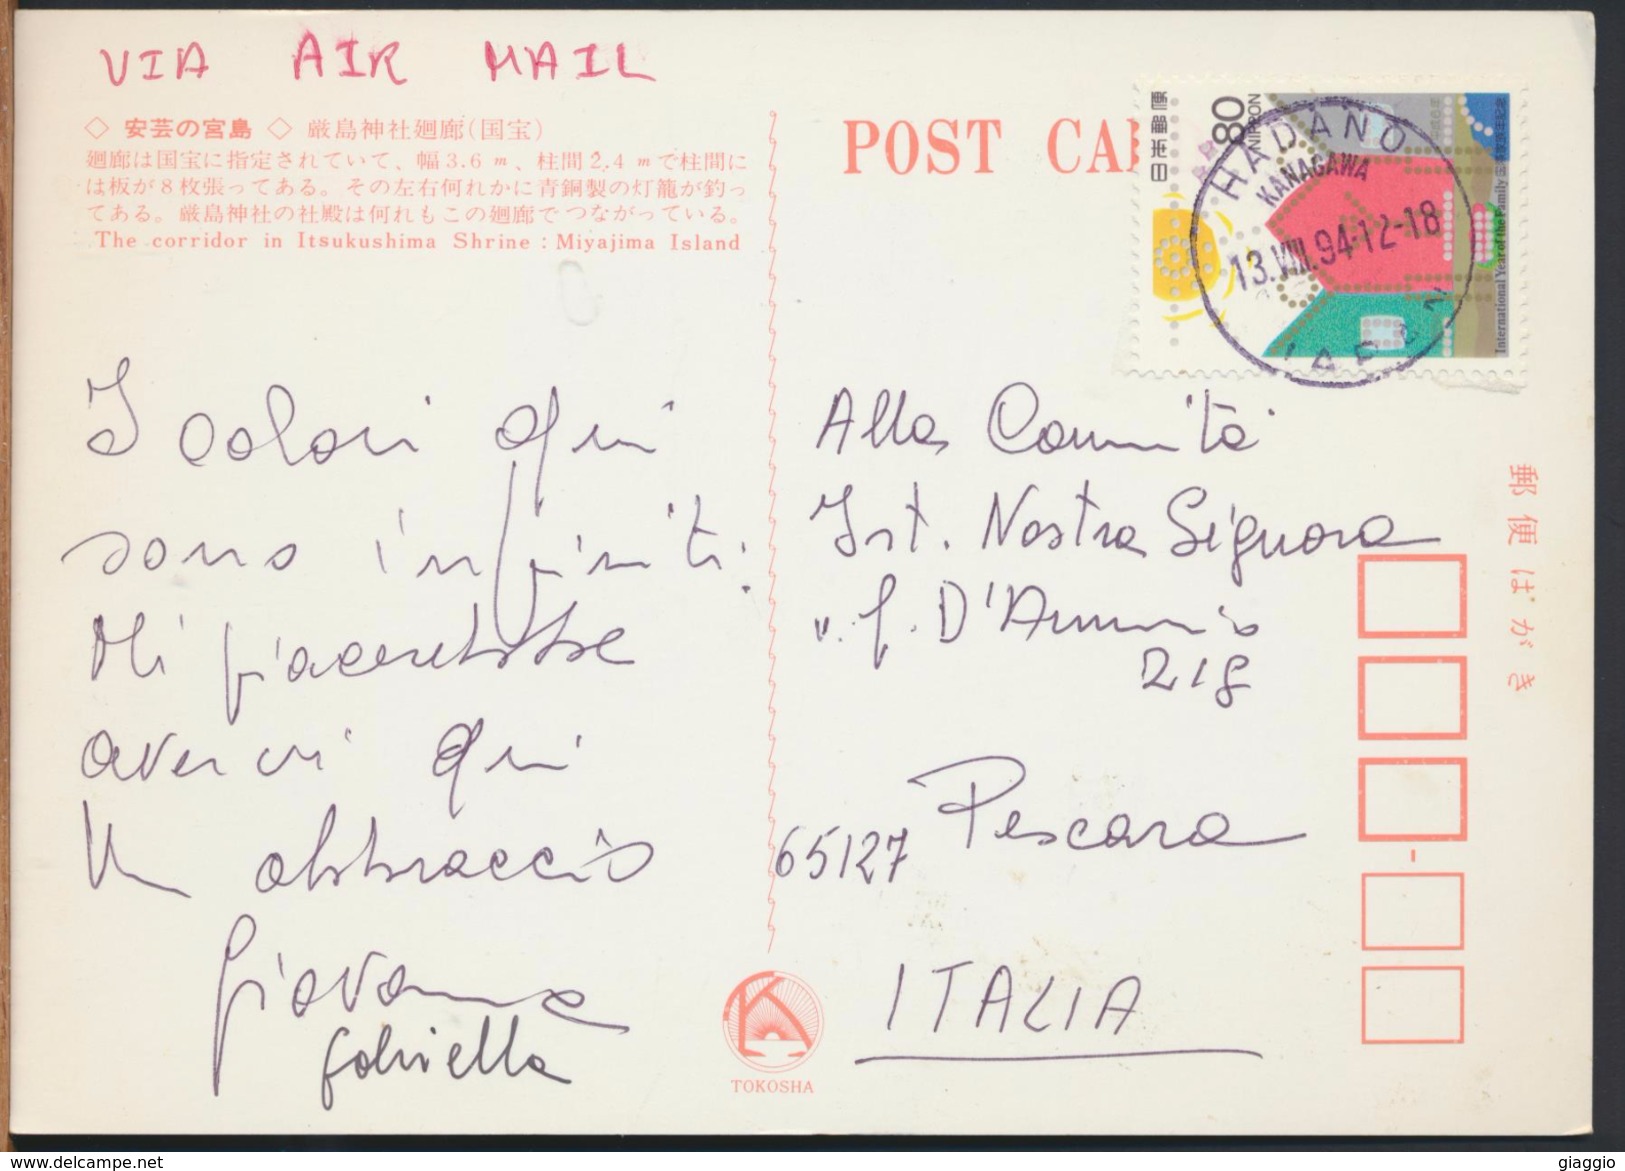 VIA AIR MAIL
◇ 安芸の宮島 ◇ 厳島神社廻廊(国宝)
廻廊は国宝に指定されていて、幅3.6m、柱間2.4mで柱間に
は板が8枚張ってある。その左右何れかに青銅製の灯籠が釣っ
てある。厳島神社の社殿は何れもこの廻廊でつながっている。
The corridor in Itsukushima Shrine : Miyajima Island
POST CA
日本郵便
80
NIPPON
International Year of the Family
HADANO
KANAGAWA
13.VIII.94.12-18
JAPAN
I colori qui
sono infiniti.
Mi piacerebbe
avervi qui
Un abbraccio
Giovanna
Gabriella
Alla Comunità
Ist. Nostra Signora
v. G. D'Annunzio
218
65127 Pescara
ITALIA
郵便はがき
TOKOSHA
giaggio
www.delcampe.net